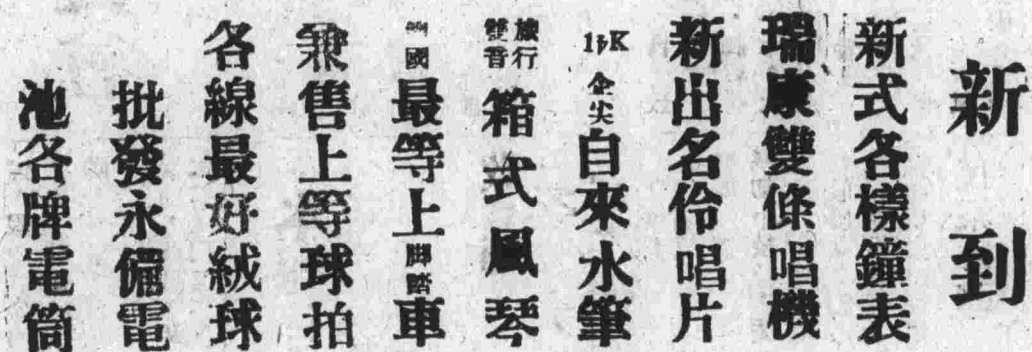 新到
新式各樣鐘表
瑞康雙條唱機
新出名伶唱片
14K金尖自來水筆
旅行雙音箱式風琴
國最等上脚踏車
兼售上等球拍
各線最好絨球
批發永備電
池各牌電筒